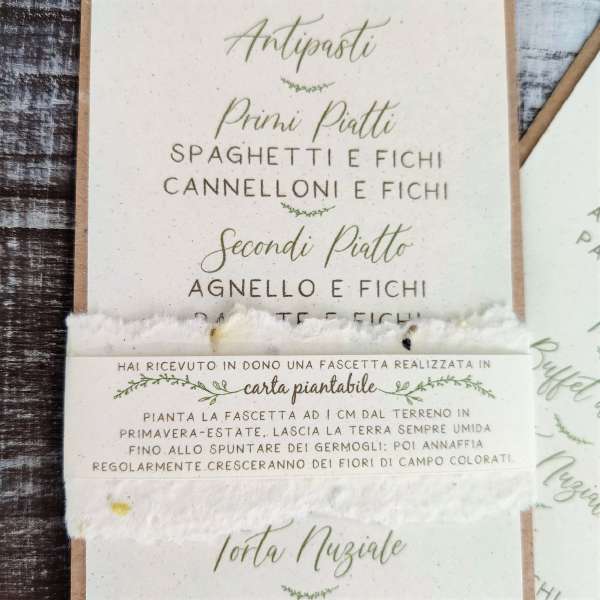 Antipasti
Primi Piatti
SPAGHETTI E FICHI
CANNELLONI E FICHI
Secondi Piatto
AGNELLO E FICHI
E FICHI
HAI RICEVUTO IN DONO UNA FASCETTA REALIZZATA IN
carta piantabile
PIANTA LA FASCETTA AD 1 CM DAL TERRENO IN
PRIMAVERA-ESTATE, LASCIA LA TERRA SEMPRE UMIDA
FINO ALLO SPUNTARE DEI GERMOGLI; POI ANNAFFIA
REGOLARMENTE. CRESCERANNO DEI FIORI DI CAMPO COLORATI.
Torta Nuziale
Buffet